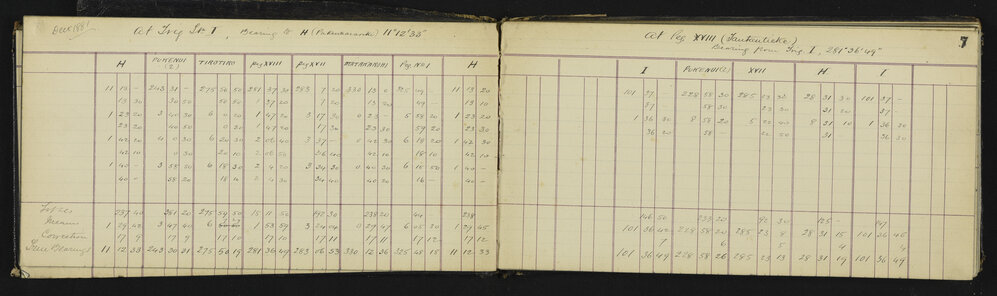 Dec 1881
At Trig Stn I, Bearing to H (Pukekaroro) 11° 12' 35"
H PUKENUI (2) TIROTIRO peg XVIII peg XVII MATAKARIRI Peg No 1 H
11 13 — 243 31 — 275 50 50 281 37 30 283 7 20 330 13 0 325 49 — 11 13 20
13 30 30 50 50 50 37 20 7 20 13 20 49 — 13 10
1 23 20 3 40 30 6 0 20 1 47 20 3 17 30 0 23 — 5 58 20 1 23 20
23 20 40 50 0 30 47 20 17 30 23 30 59 20 23 10
1 42 20 4 0 30 6 20 30 2 06 40 3 37 — 0 42 30 6 18 20 1 42 30
42 10 0 30 20 10 2 06 50 36 40 42 10 18 10 42 10
1 40 — 3 58 30 6 18 30 2 4 20 3 34 30 0 40 30 6 16 50 1 40 —
40 — 58 20 18 10 2 4 30 34 40 40 20 16 — 40 —
Totals 237 40 381 20 275 15 11 50 192 30 238 20 44 238
Means 1 29 42 3 47 40 6 1 53 59 3 24 04 0 29 47 6 05 30 1 29 45
Correction 17 9 17 9 17 10 17 10 17 11 17 11 17 12 17 12
True Bearings 11 12 33 243 30 31 275 50 19 281 36 49 283 06 53 330 12 36 325 48 15 11 12 33
At Peg XVIII (Tautauticke) 7
Bearing from Trig I, 281° 36' 49"
I PUKENUI (2) XVII H I
101 37 — 228 58 30 285 23 30 28 31 30 101 37 —
37 — 58 30 23 30 31 20 37 —
1 36 50 8 58 20 5 22 40 8 31 10 1 36 30
36 20 58 — 22 50 31 36 30
146 50 233 20 92 30 125 — 147
101 36 42 228 58 20 285 23 8 28 31 15 101 36 45
7 6 5 4 4
101 36 49 228 58 26 285 23 13 28 31 19 101 36 49